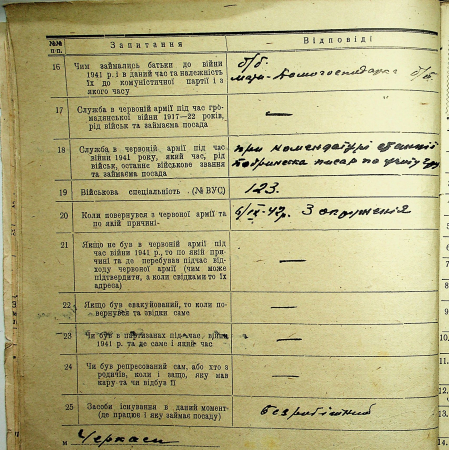 №№ п.п. Запитання Відповіді
16 Чим займались батьки до війни б/б.
1941 р. і в даний час та належність мати - домогосподарка б/п.
їх до комуністичної партії і з
якого часу
17 Служба в червоній армії під час гро-
мадянської війни 1917—22 років, —
рід військ та займаєма посада
18 Служба в червоній армії під час при комендатурі станції
війни 1941 року, який час, рід Бобринська писар по
війск, останнє військове звання
та займаєма посада
19 Військова спеціальність (№ ВУС) 123.
20 Коли повернувся з червоної армії та 6/IX-42р. З окруженія
по якій причині-
21 Якщо не був в червоній армії під
час війни 1941 р., то по якій при-
чині та де перебував підчас від- —
ходу червоної армії (чим може
підтвердити, а коли свідками то їх
адреса)
22 Якщо був евакуйований, то коли по- —
вернувся та звідки саме
23 Чи був в партизанах під час війни —
1941 р. та де саме і який час
24 Чи був репресований сам, або хто з
родичів, коли і защо, яку мав —
кару та чи відбув її
25 Засоби існування в даний момент безробітний
(де працює і яку займає посаду)
м Черкаси